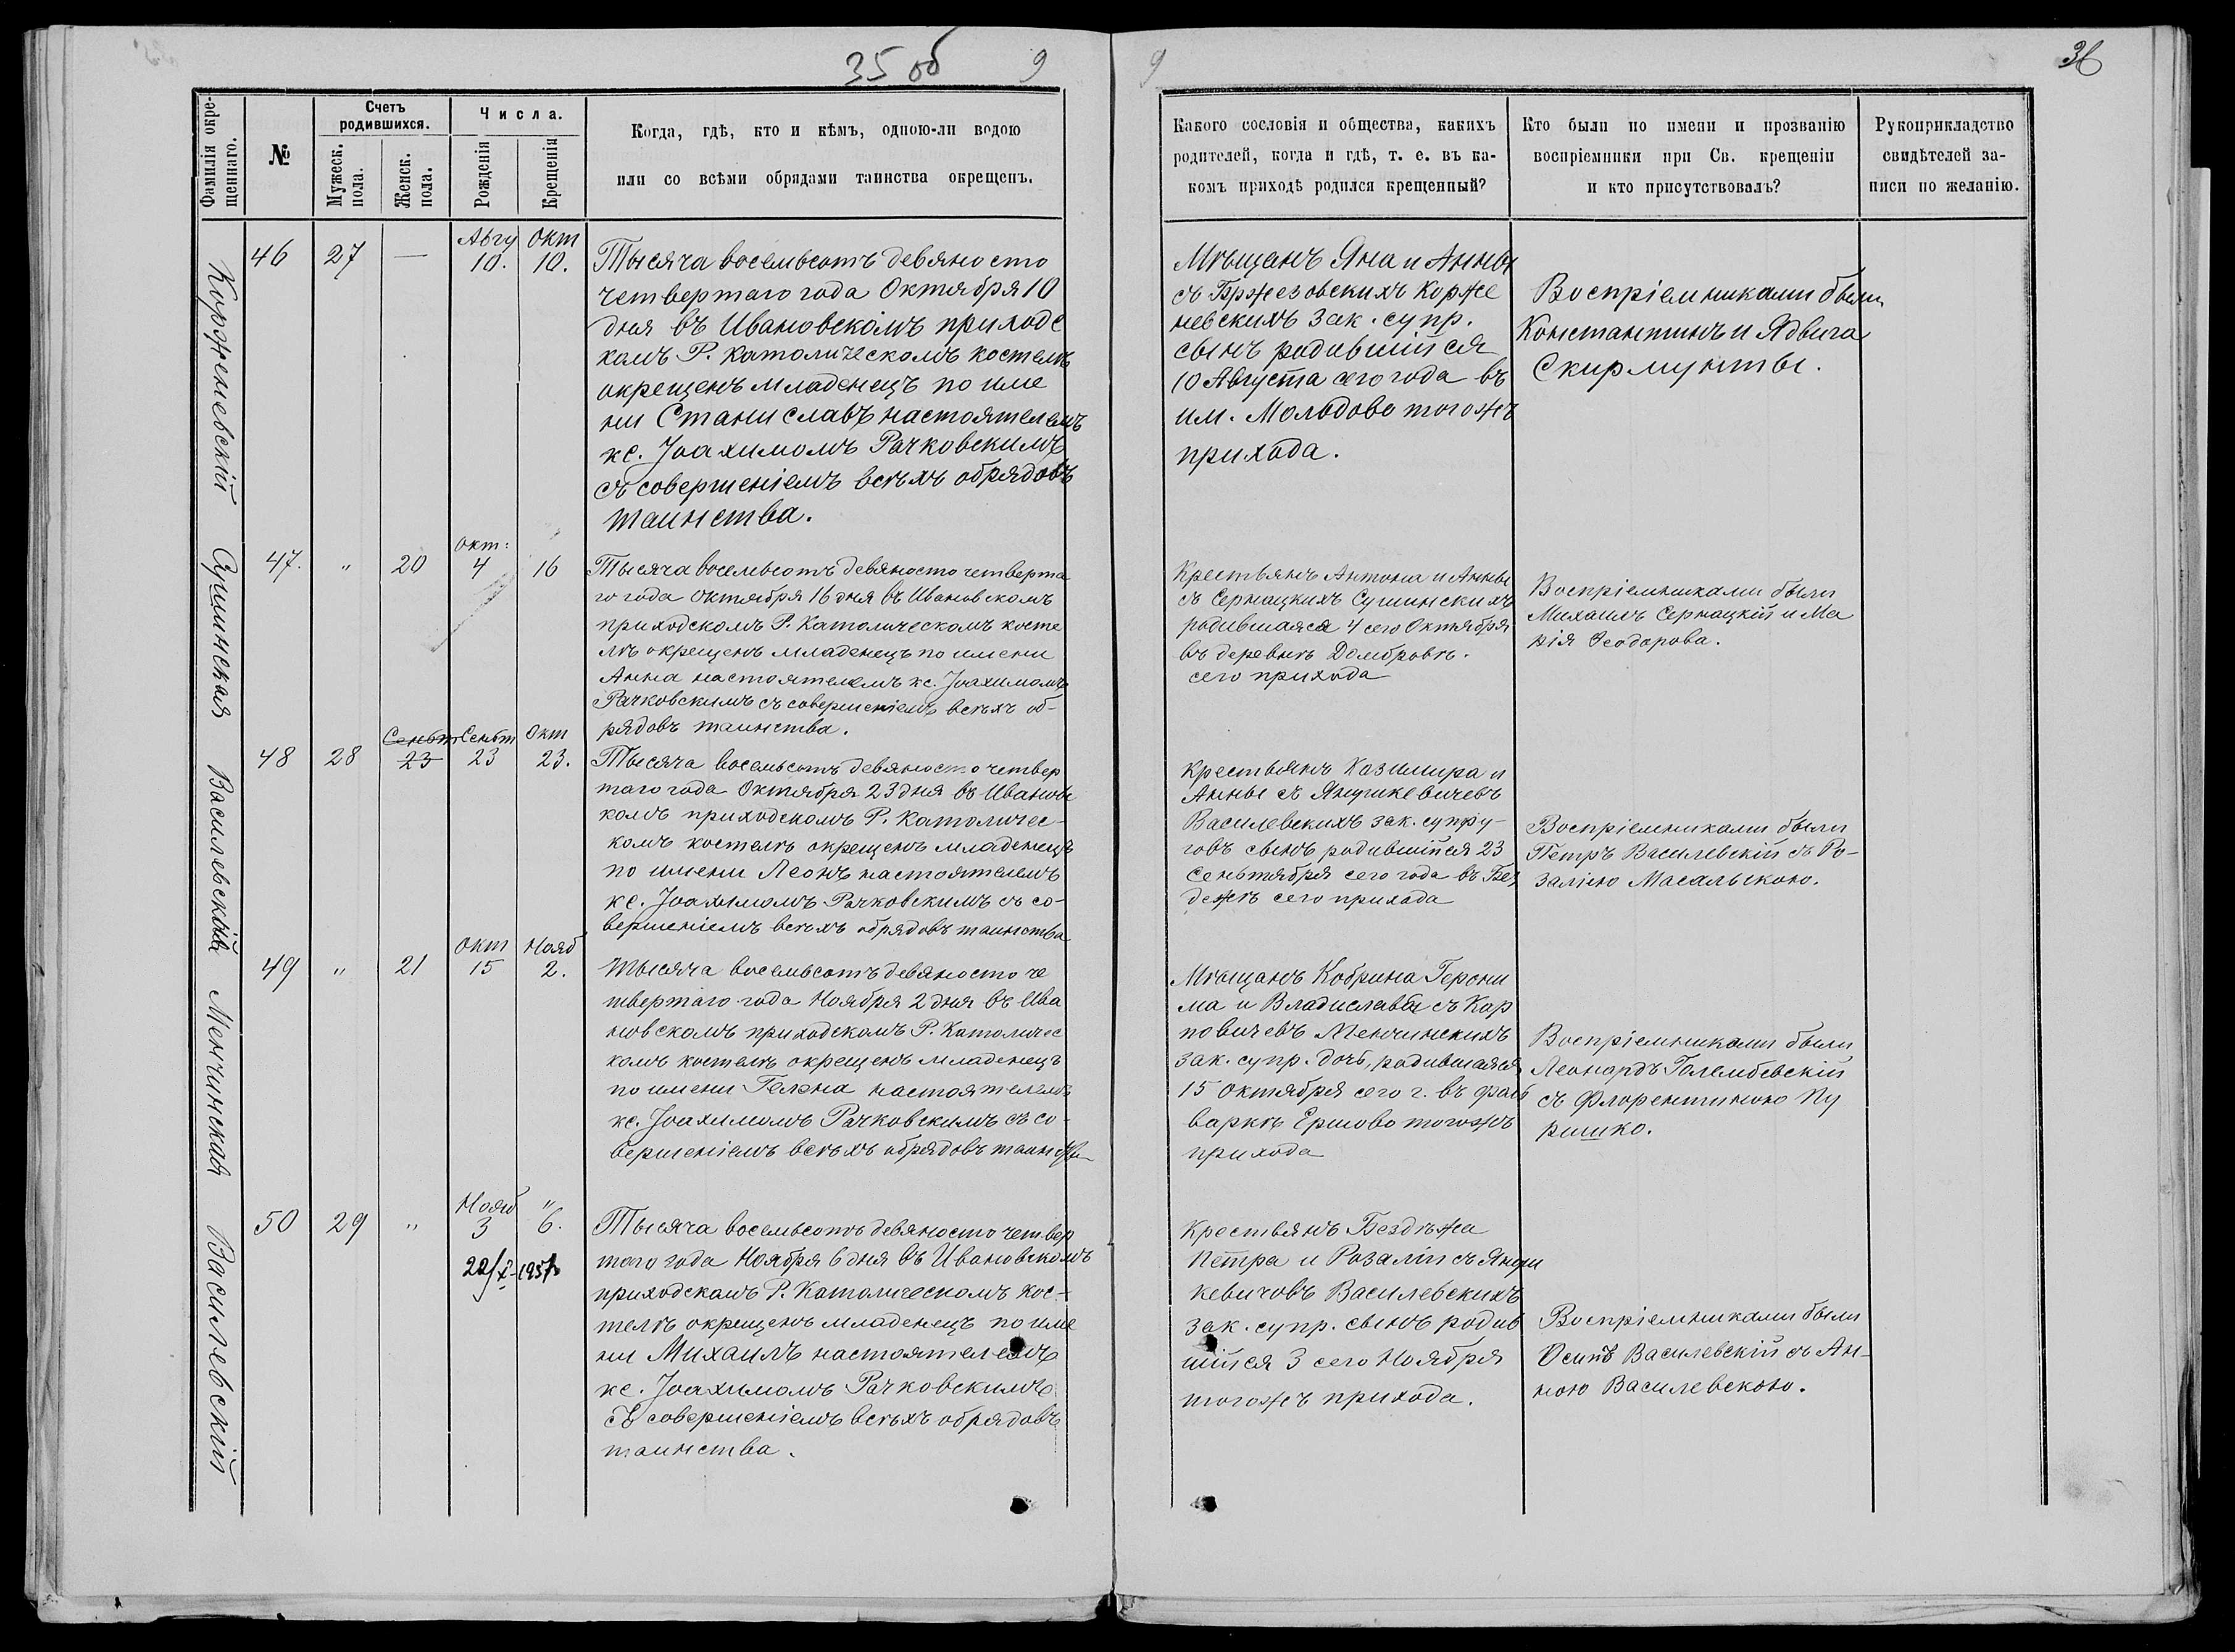 35 об
9
Фамилія окре-
щеннаго.
№
Счетъ
родившихся.
Мужеск.
пола.
Женск.
пола.
Числа.
Рожденія
Крещенія
Когда, гдѣ, кто и кѣмъ, одною-ли водою
или со всѣми обрядами таинства окрещенъ.
Корженевскій
46
27
—
Авгу
10.
Окт
10.
Тысяча восемьсотъ девяносто
четвертаго года Октября 10
дня въ Ивановскомъ приходс
комъ Р. Католическомъ костелѣ
окрещенъ младенецъ по име
ни Станиславъ настоятелемъ
кс. Іоахимомъ Рачковскимъ
съ совершеніемъ всѣхъ обрядовъ
таинства.
Сушинская
47.
"
20
Окт:
4
16
Тысяча восемьсотъ девяносто четверта
го года Октября 16 дня въ Ивановскомъ
приходскомъ Р. Католическомъ косте
лѣ окрещенъ младенецъ по имени
Анна настоятелемъ кс. Іоахимомъ
Рачковскимъ съ совершеніемъ всѣхъ об-
рядовъ таинства.
Василевскій
48
28
Сеньт
23
Сеньт
23
Окт
23.
Тысяча восемьсотъ девяносто четвер
таго года Октября 23 дня въ Ивановс
комъ приходскомъ Р. Католичес-
комъ костелѣ окрещенъ младенецъ
по имени Леонъ настоятелемъ
кс. Іоахимомъ Рачковскимъ съ со-
вершеніемъ всѣхъ обрядовъ таинства
Менчинская
49
"
21
Окт
15
Нояб
2.
Тысяча восемьсотъ девяносто че
твертаго года Ноября 2 дня въ Ива
новскомъ приходскомъ Р. Католичес
комъ костелѣ окрещенъ младенецъ
по имени Гелэна настоятелемъ
кс. Іоахимомъ Рачковскимъ съ со-
вершеніемъ всѣхъ обрядовъ таинства
Василевскій
50
29
"
Нояб
3
"
6.
Тысяча восемьсотъ девяносто четвер
таго года Ноября 6 дня въ Ивановскомъ
приходскомъ Р. Католическомъ кос-
телѣ окрещенъ младенецъ по име
ни Михаилъ настоятелемъ
кс. Іоахимомъ Рачковскимъ
съ совершеніемъ всѣхъ обрядовъ
таинства.
9
36
Какого сословія и общества, какихъ
родителей, когда и гдѣ, т. е. въ ка-
комъ приходѣ родился крещенный?
Кто были по имени и прозванію
воспріемники при Св. крещеніи
и кто присутствовалъ?
Рукоприкладство
свидѣтелей за-
писи по желанію.
Мѣщанъ Яна и Анны
съ Бржезовскихъ Корже
невскихъ зак. супр.
сынъ родившійся
10 Августа сего года въ
им. Мольдово тогожъ
прихода.
Воспріемниками были
Константинъ и Ядвига
Скирмунты.
Крестьянъ Антона и Анны
съ Сернацкихъ Сушинскихъ
родившаяся 4 сего Октября
въ деревнѣ Домбровѣ.
сего прихода
Воспріемниками были
Михаилъ Сернацкій и Ма
рія Ѳеодорова.
Крестьянъ Казимира и
Анны съ Янушкевичевъ
Василевскихъ зак. супру-
говъ сынъ родившійся 23
Сеньтября сего года въ Без
дежѣ сего прихода
Воспріемниками были
Петръ Василевскій съ Ро-
заліею Масальскою.
Мѣщанъ Кобрина Герони
ма и Владиславы съ Кар
повичевъ Менчинскихъ
зак. супр. дочь, родившаяся
15 Октября сего г. въ фаль
варкѣ Ершово тогожъ
прихода
Воспріемниками были
Леонардъ Голембевскій
съ Флорентиною Пу
ришко.
Крестьянъ Бездѣжа
Петра и Розаліи съ Януш
кевичовъ Василевскихъ
зак. супр. сынъ родив
шійся 3 сего Ноября
тогожъ прихода.
Воспріемниками были
Осипъ Василевскій съ Ан-
ною Василевскою.